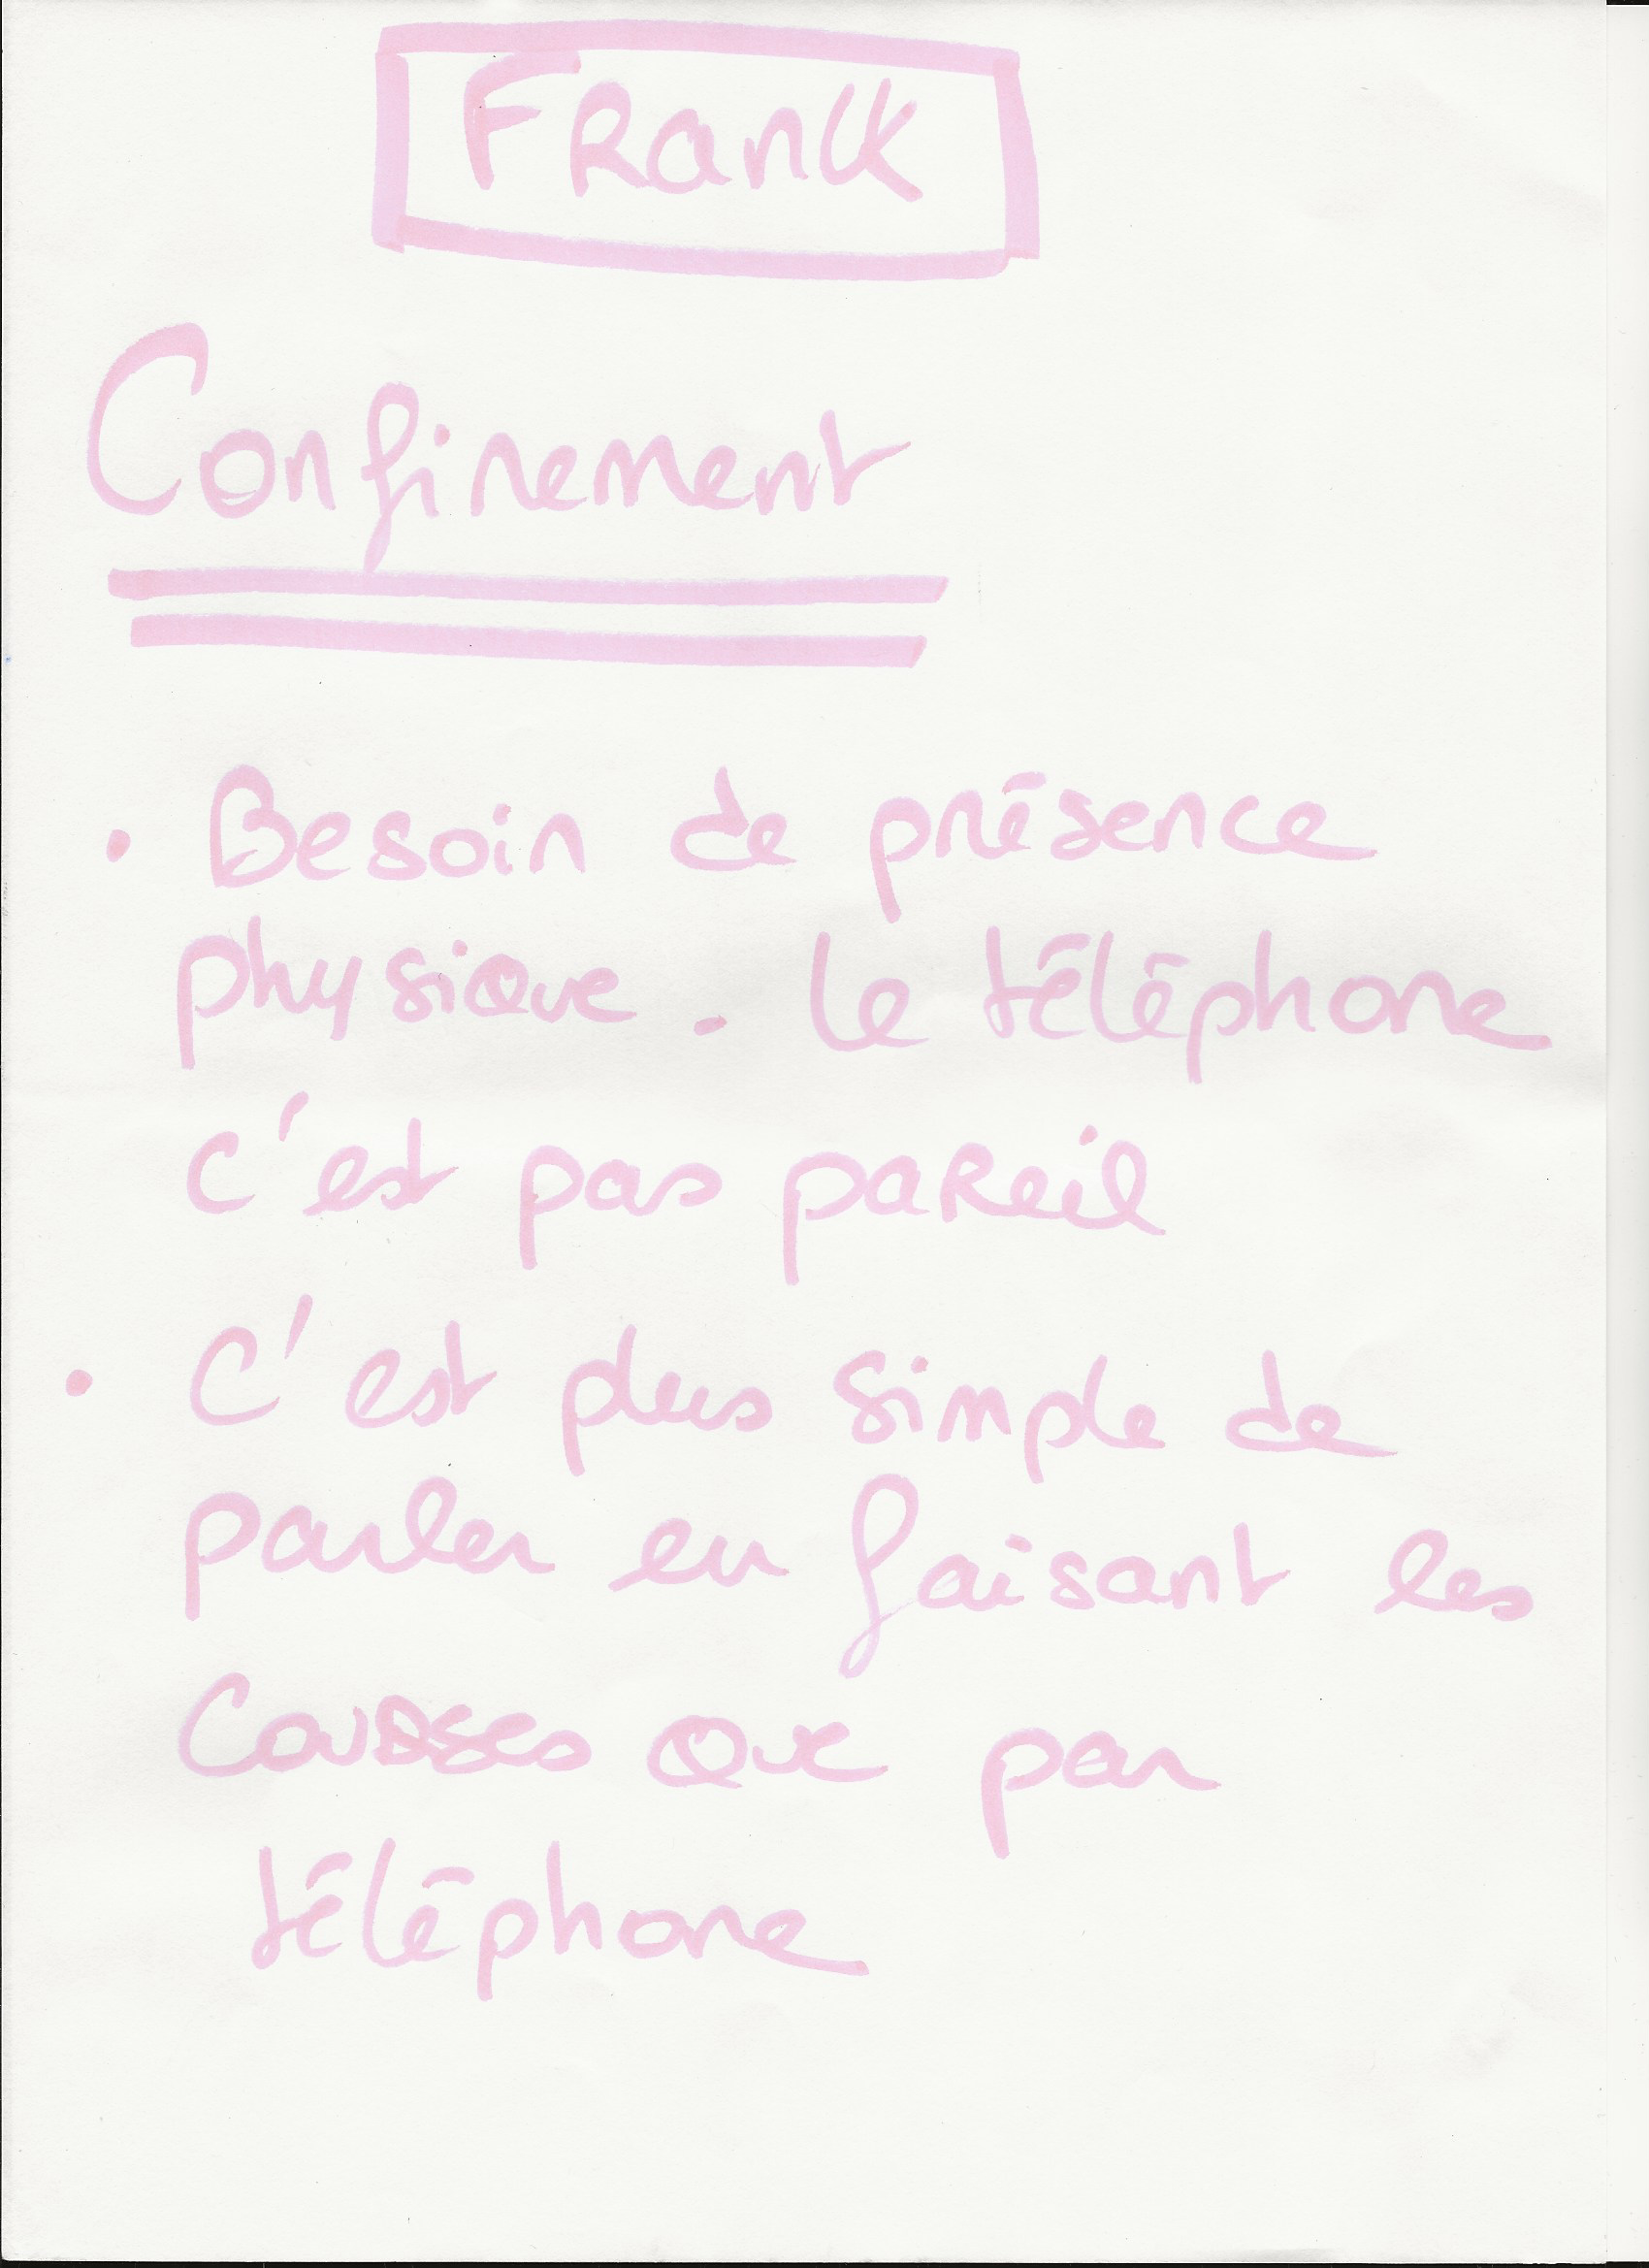 FRanck
Confinement
• Besoin de présence
physique. le téléphone
c'est pas paReil
• c'est plus simple de
parler en faisant les
Courses que par
téléphone